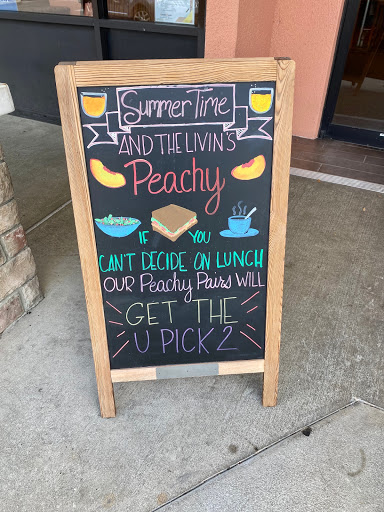 SUMMER TIME
AND THE LIVIN'S
Peachy
IF YOU
CAN'T DECIDE ON LUNCH
OUR Peachy Pairs WILL
GET THE
U PICK 2